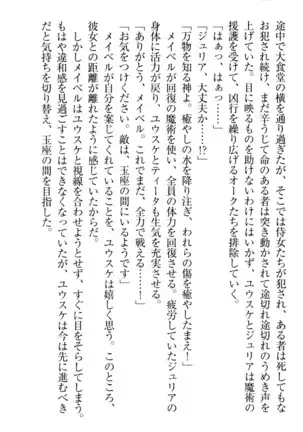 途中で大食堂の横を通りすぎたが、そこでは侍女たちが犯され、ある者は死してもな
お犯され続け、まだ辛うじて命のある者は突き動かされて途切れ途切れのうめき声を
上げていた。目に映るものを助けないわけにはいかず、ユウスケとジュリアは魔術の
援護を受けて、凶行を繰り広げるオークたちを排除していく。
「はぁっ、はぁっ……」
「ジュリア、大丈夫か……!?」
「万物を知る神よ。癒やしの水を降り注ぎ、われらの傷を癒やしたまえ！」
メイベルが回復の魔術を使い、全員の体力を回復させる。疲労していたジュリアの
身体に活力が戻り、ユウスケとティータも生気を充実させる。
「ありがとう、メイベル。これでまだ、全力で戦える……！」
「お気をつけください。敵は、玉座の間にいるようです」
メイベルが自分を案じてくれていることを、ユウスケは嬉しく思う。このところ、
彼女との距離が離れたように感じていたからだ。
しかしメイベルはユウスケと視線を合わせようとせず、すぐに目をそらしてしまう。
もはや違和感を見過ごすことはできなくなっていたが、ユウスケは今は先に進むべき
だと気持ちを切り替え、玉座の間を目指した。